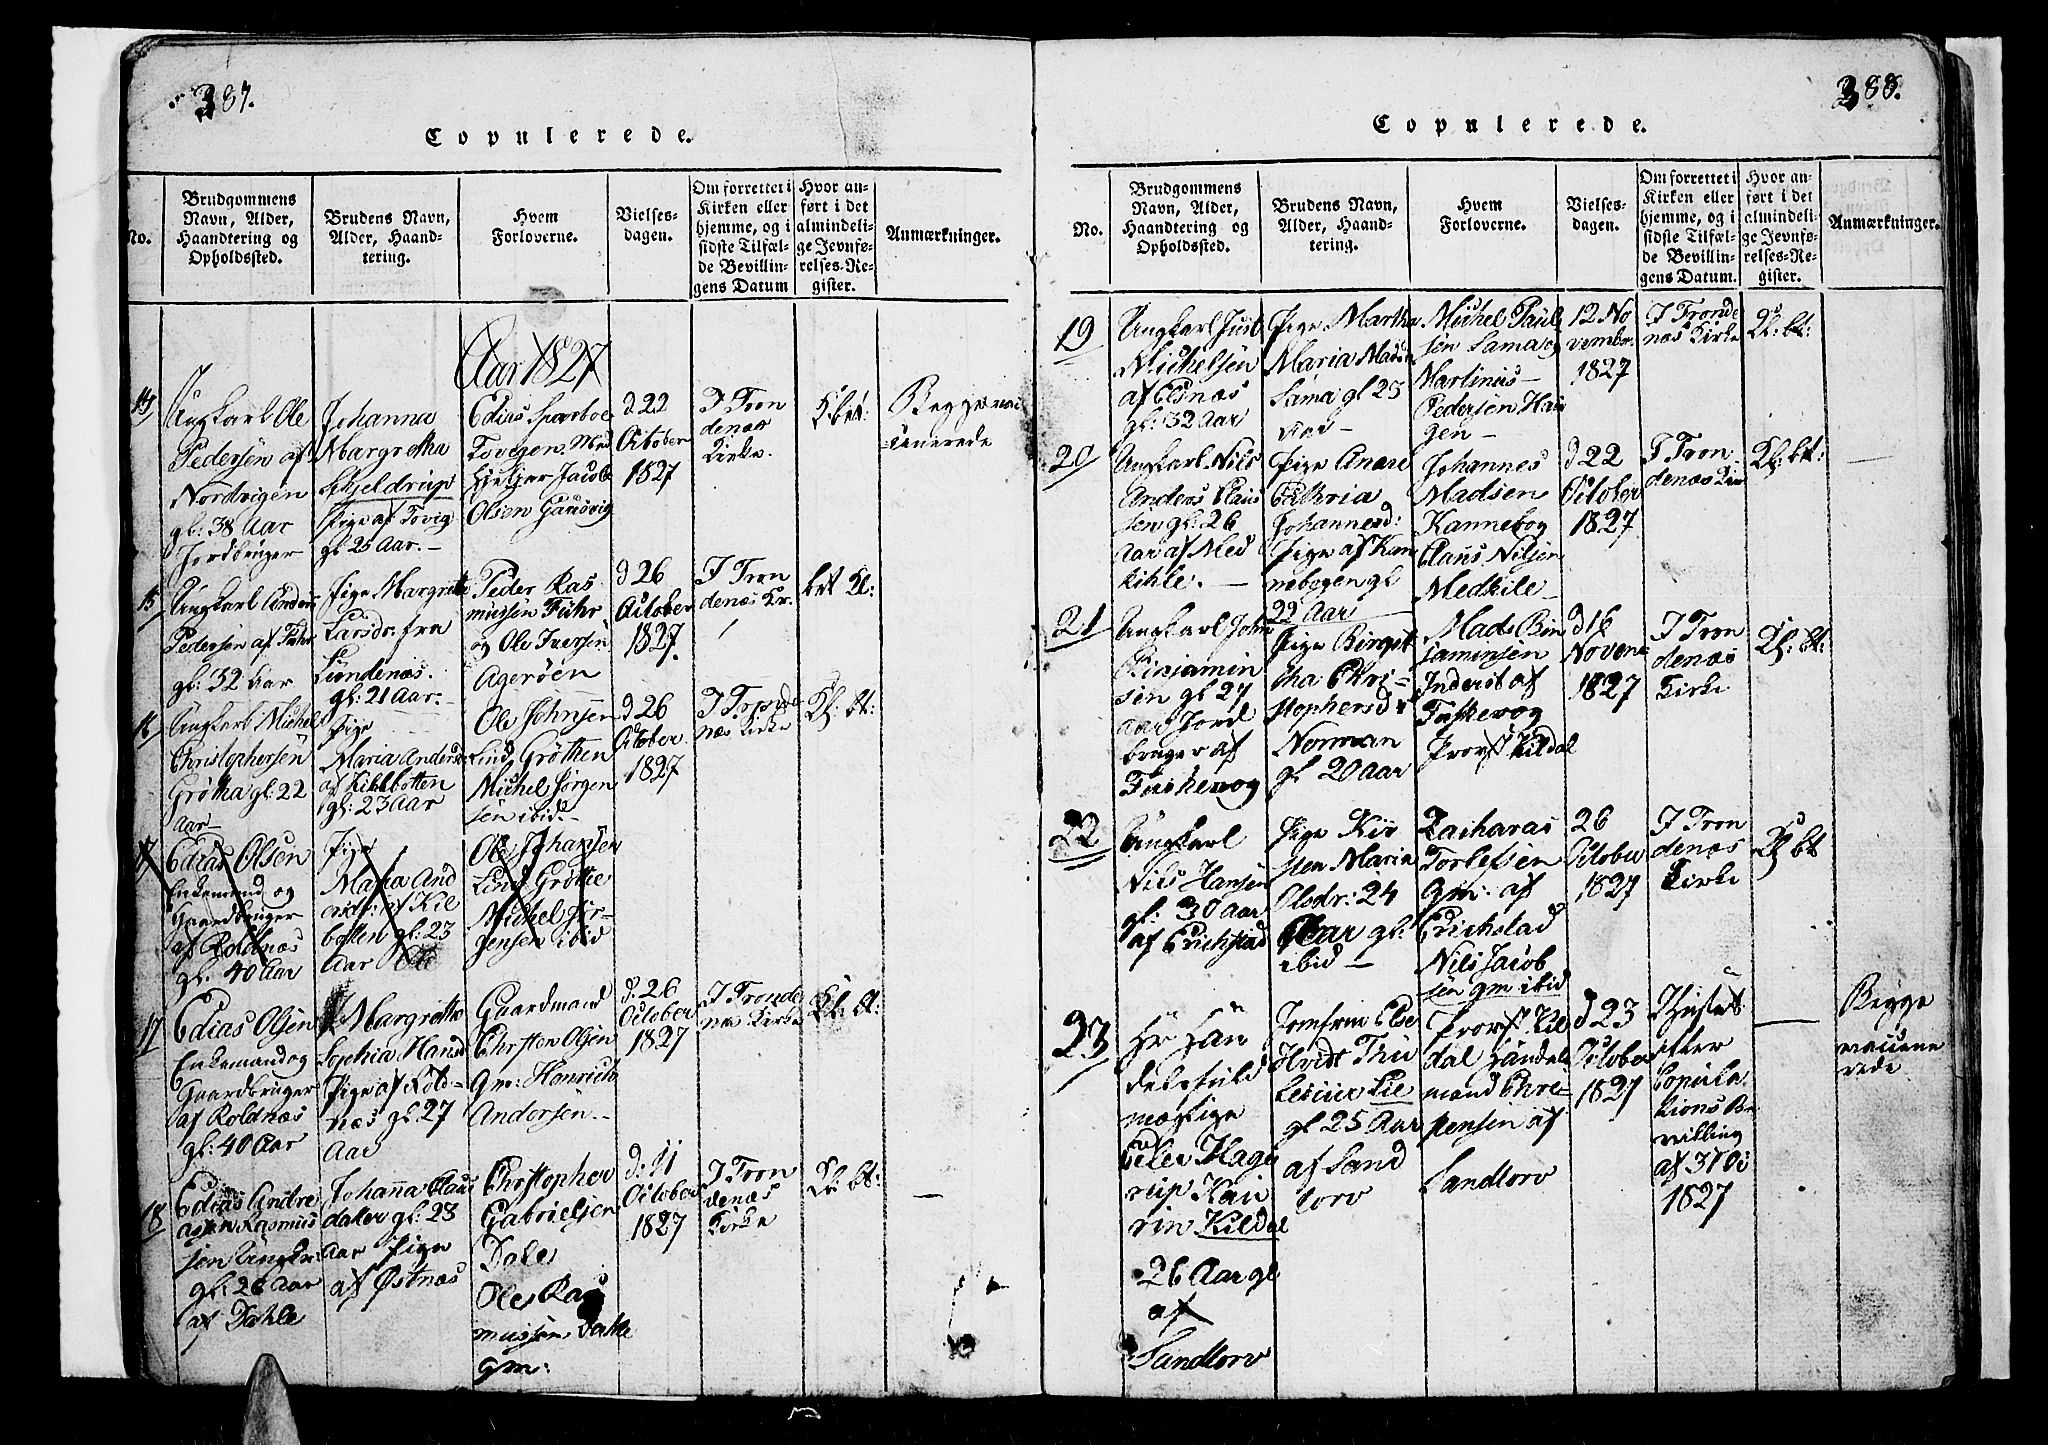 387.
Copulerede.
No.
Brudgommens
Navn, Alder,
Haandtering og
Opholdssted.
Brudens Navn,
Alder, Haand-
tering.
Hvem
Forloverne.
Vielses-
dagen.
Om forrettet i
Kirken eller
hjemme, og i
sidste Tilfæl-
de Bevillin-
gens Datum
Hvor an-
ført i det
almindeli-
ge Jevnfø-
relses-Re-
gister.
Anmærkninger.
Aar 1827
14
Ungkarl Ole
Pedersen af
Nordvigen
gl: 38 Aar
Jordbruger
Johanna
Margretha
Schjeldrup
Pige af Tovig
gl 25 Aar.
Edias Sparboe
Tovigen
Jacob
Olsen Gausvig
d 22
October
1827
I Tron
denæs
Kirke.
Begge vac
cinerede
15
Ungkarl Anders
Pedersen af Fuhr
gl: 32 Aar
Pige Margrethe
Larsdr: fra
Sundenæs.
gl: 21 Aar.
Peder Ras
mussen Fuhr
og Ole Iversen
Agerøen
d 26
October
1827.
I Tron
denæs Kr.
16
Ungkarl Michel
Christophersen
Grøtha gl: 22
Aar
Pige
Maria Anders
af Kilbotten
gl: 23 Aar
Ole Johnsen
Lind Grøthen
Michel Jørgen
sen ibid.
d 26
October
1827
I Tronde
næs Kirke
Kl: bt:
17
Edias Olsen
Enkemand og
Gaardbruger
af Roldnæs
gl: 40 Aar
Pige
Maria And
ersdr: af Kil
botten gl: 23
Aar
Ole Johansen
Lind Grøtte
Michel Jør-
gensen ibid
17
Edias Olsen
Enkemand og
Gaardbruger
af Roldnæs
gl: 40 Aar
Margrethe
Sophia Hansd
Pige af Rold-
næs gl: 27
Aar
Gaardmand
Christen Olsen
Gm: Henrich
Andersen
d: 26
October
1827
I Tronde
næs Kirke
Kl: bt:
18
Edias Andre
asen Rasmus
sen Ungkr:
gl: 26 Aar
af Dahle
Johanna Claus
datter gl: 28
Aar Pige
af Østnæs
Christopher
Gabrielsen
Dale
Ole Ras
mussen Dahle
gm:
d: 11
October
1827
I Tron
denæs
Kirke
Kl: bt:
388.
Copulerede.
No.
Brudgommens
Navn, Alder,
Haandtering og
Opholdssted.
Brudens Navn,
Alder, Haand-
tering.
Hvem
Forloverne.
Vielses-
dagen.
Om forrettet i
Kirken eller
hjemme, og i
sidste Tilfæl-
de Bevillin-
gens Datum.
Hvor an-
ført i det
almindeli-
ge Jevnfø-
relses-Re-
gister.
Anmærkninger.
19
Ungkarl Just
Michelsen
af Elsnæs
gl: 32 Aar
Pige Martha
Maria Mads
Sama gl 23
Aar
Michel Paul
sen Sama og
Martinus
Pedersen Hau
gen
12 No
vembr.
1827
I Tronde
næs Kirke
Kl: bt:
20
Ungkarl Nils
Anders Claus
sen gl: 26
Aar af Med
kihle.
Pige Anne
Cathria
Johannesd:
Pige af Kan
nebogen gl
22 Aar
Johannes
Madsen
Kannebog
Claus Nilsen
Medkile
d 22
October
1827
I Tron
denæs Kir
Kl: bt:
21
Ungkarl John
Benjamin
sen gl 27
Aar Jord
bruger af
Fuskevog
Pige Birgit
tha Chri-
stophersd
Norman
gl 20 Aar
Mads Ben
jaminsen
Inderst af
Fuskevog
Provst Kildal
d 16
Novem
1827
I Tron
denæs
Kirke
Kl: bt:
22
Ungkarl
Nils Hansen
gl: 30 Aar
af Erichstad
Pige Kir
sten Maria
Olsdr: 24
Aar gl:
ibid
Zacharas
Torlefsen
Gm: af
Erichstad
Nils Jacob
sen gm ibid
26
October
1827
I Tron
denæs
Kirke
Kl bt
23
Hr Han
delsfuld
mægtige
Peter Hage
rup Kau
rin Kildal
26 Aar gl
af
Sandtorv
Jomfru Else
Hvidt Thu
Lie
gl 25 Aar
af Sand
torv
Provst Kil
dal Handels
mand Chri-
stensen af
Sandtorv
d 23
October
1827
I Huset
efter
Copula
tions Be
villing
af 31 Oc
1827
Begge
vaccine
rede